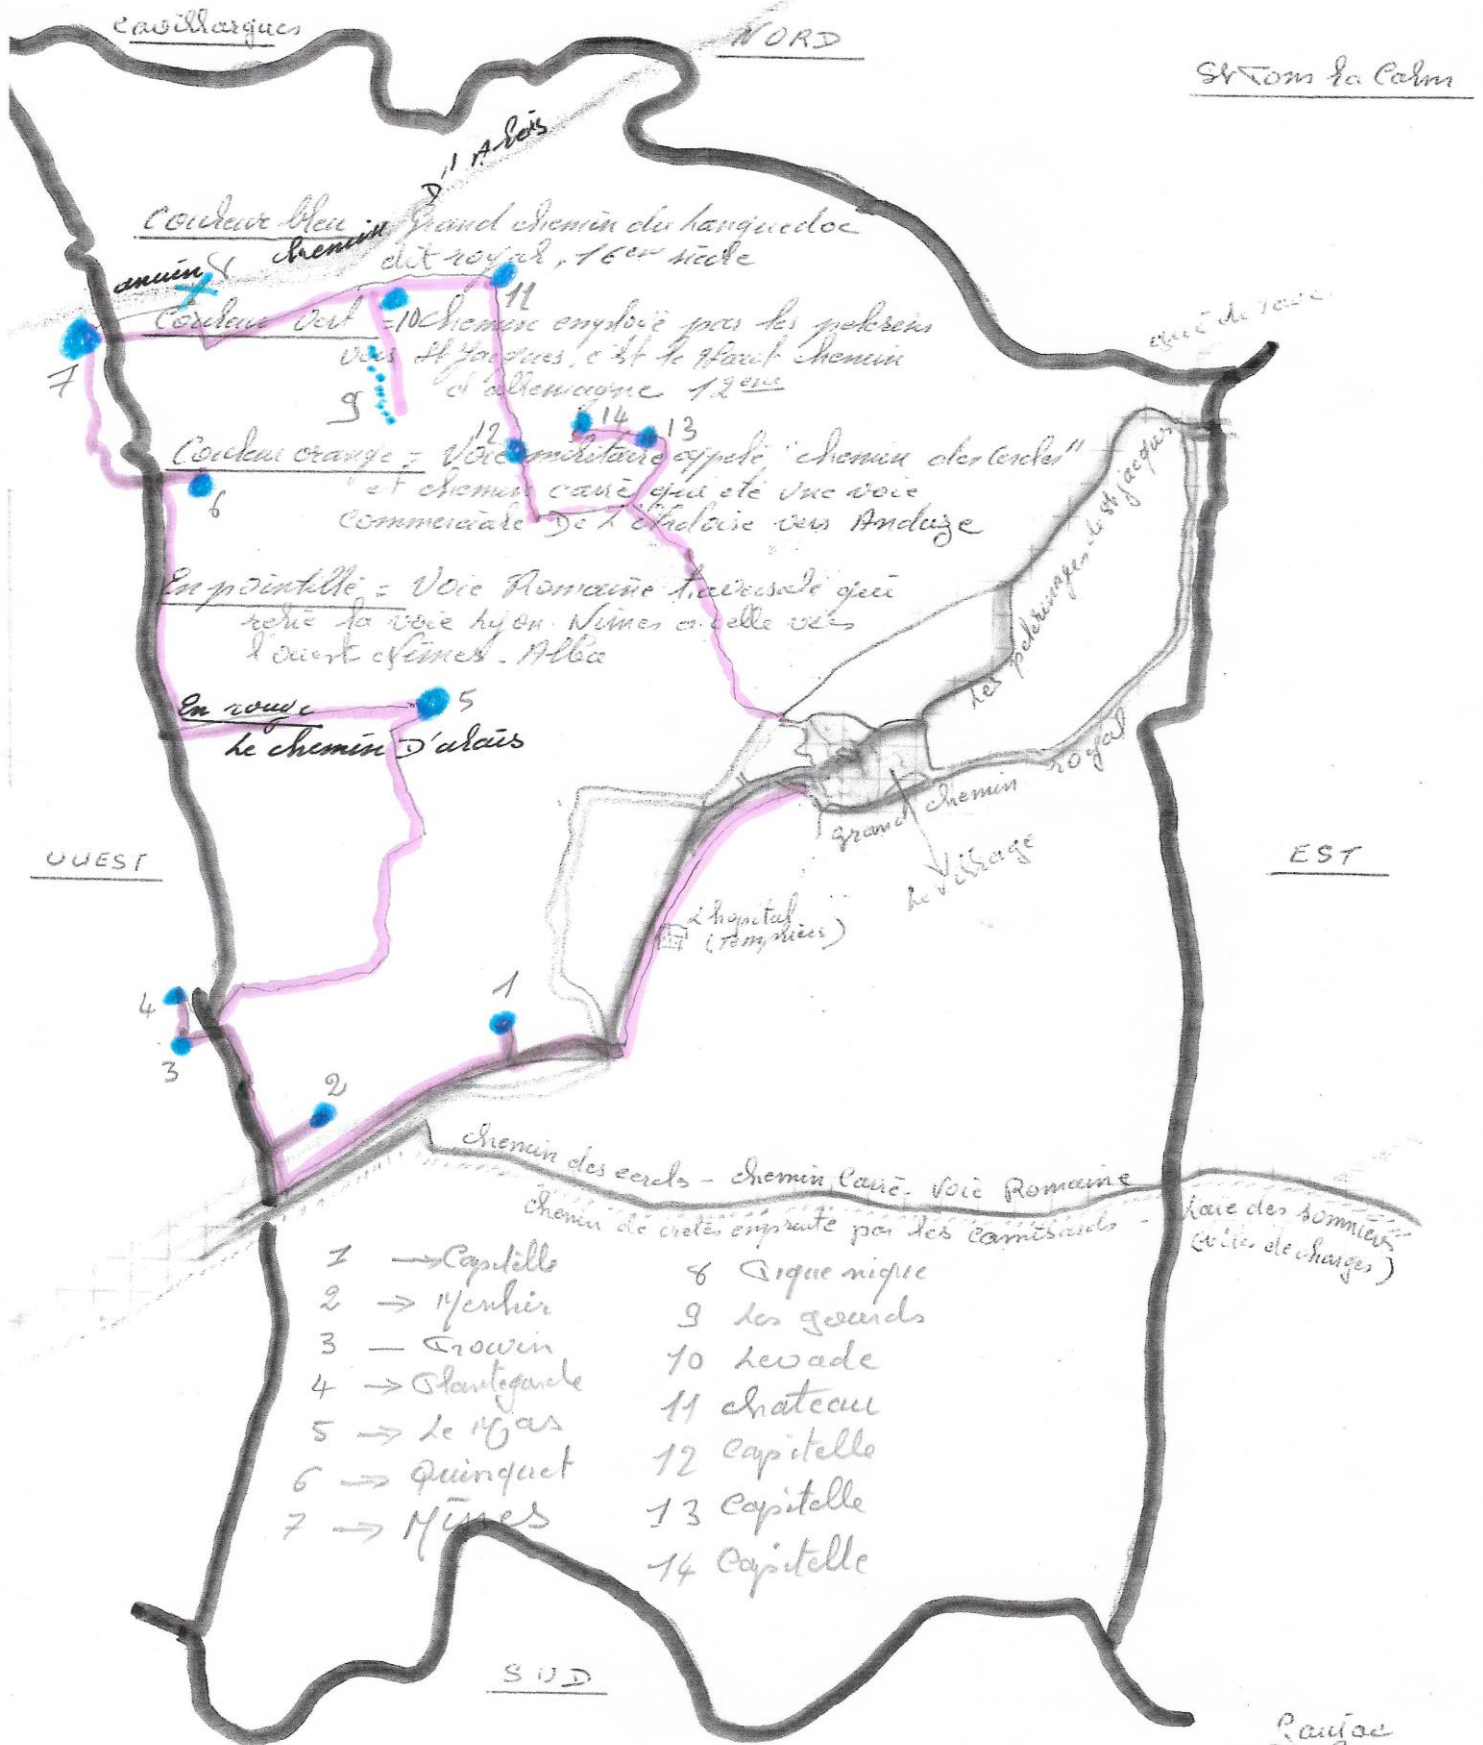 Cavillargues
NORD
St Pons la Calm
ancien chemin D'Alès
Couleur bleu Grand chemin du Languedoc
dit royal, 16em siècle
Couleur vert = chemin employé par les pelerins
vers St Jacques, c'est le Haut chemin
d'allemagne 12eme
Couleur orange = Voie militaire appelé "chemin des cercles"
et chemin carré qui été une voie
commerciale De L'Ardoise vers Anduze
En pointillé = Voie Romaine traversale qui
relie la voie Lyon-Nimes a celle vers
l'ouest Nîmes-Alba
En rouge
Le chemin D'alais
7
8
9
10
11
12
14
13
6
5
4
3
2
1
gué de
Les pelerinages de St jacques
grand chemin royal
Le Village
OUEST
EST
L'hopital
(Templiers)
chemin des cercles - chemin Carré - Voie Romaine
chemin de cretes emprunté par les camisards -
des sommiers
de charges)
1 → Capitelle
2 → Menhir
3 —
4 → Plantegarde
5 → Le Mas
6 → Quinquet
7 → Mines
8 Pique nique
9 Les gourds
10 Levade
11 chateau
12 Capitelle
13 Capitelle
14 Capitelle
SUD